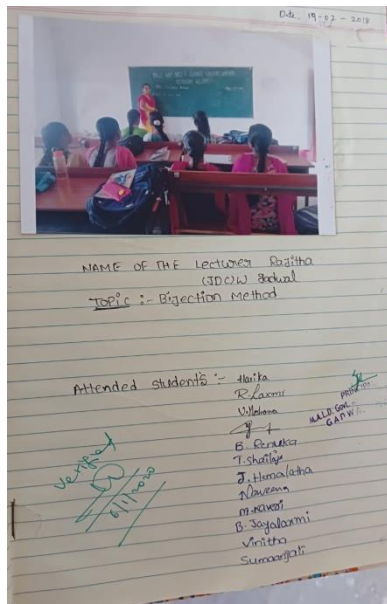 Date: 19-02-2018
NAME OF THE Lecturer Rajitha
(JDC)W Gadwal
TOPIC :- Bijection Method
Attended Student's :- Harika
R. Laxmi
B. Renuka
T. Shailaja
J. Hemalatha
Naveena
M. Kaveri
B. Jayalaxmi
Vinitha
Sumaanjali
Verified
6/1/2020
M.A.L.D. GOVT.